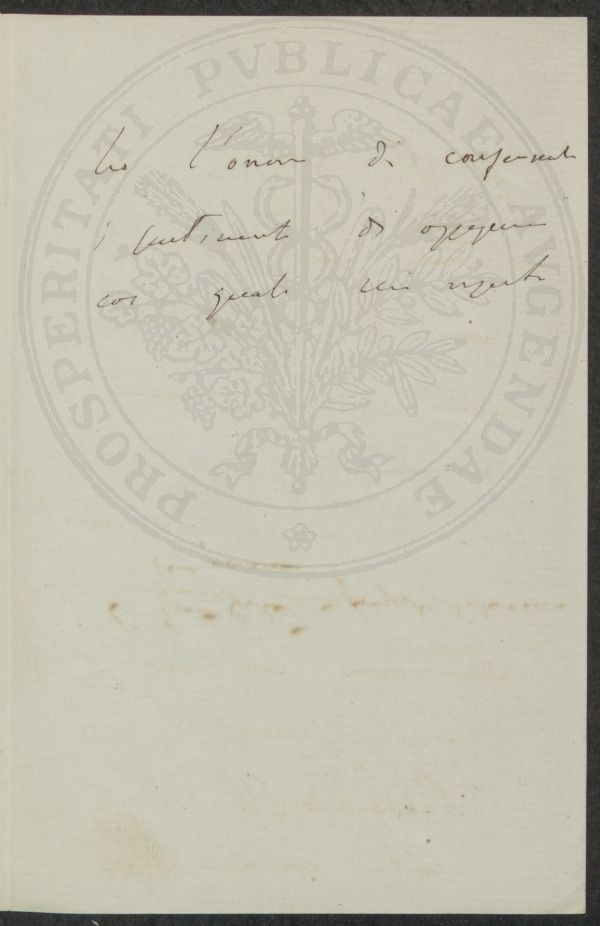 PROSPERITATI PVBLICAE AVGENDAE
ho l'onore di confermarle
i sentimenti di ossequio
coi quali mi